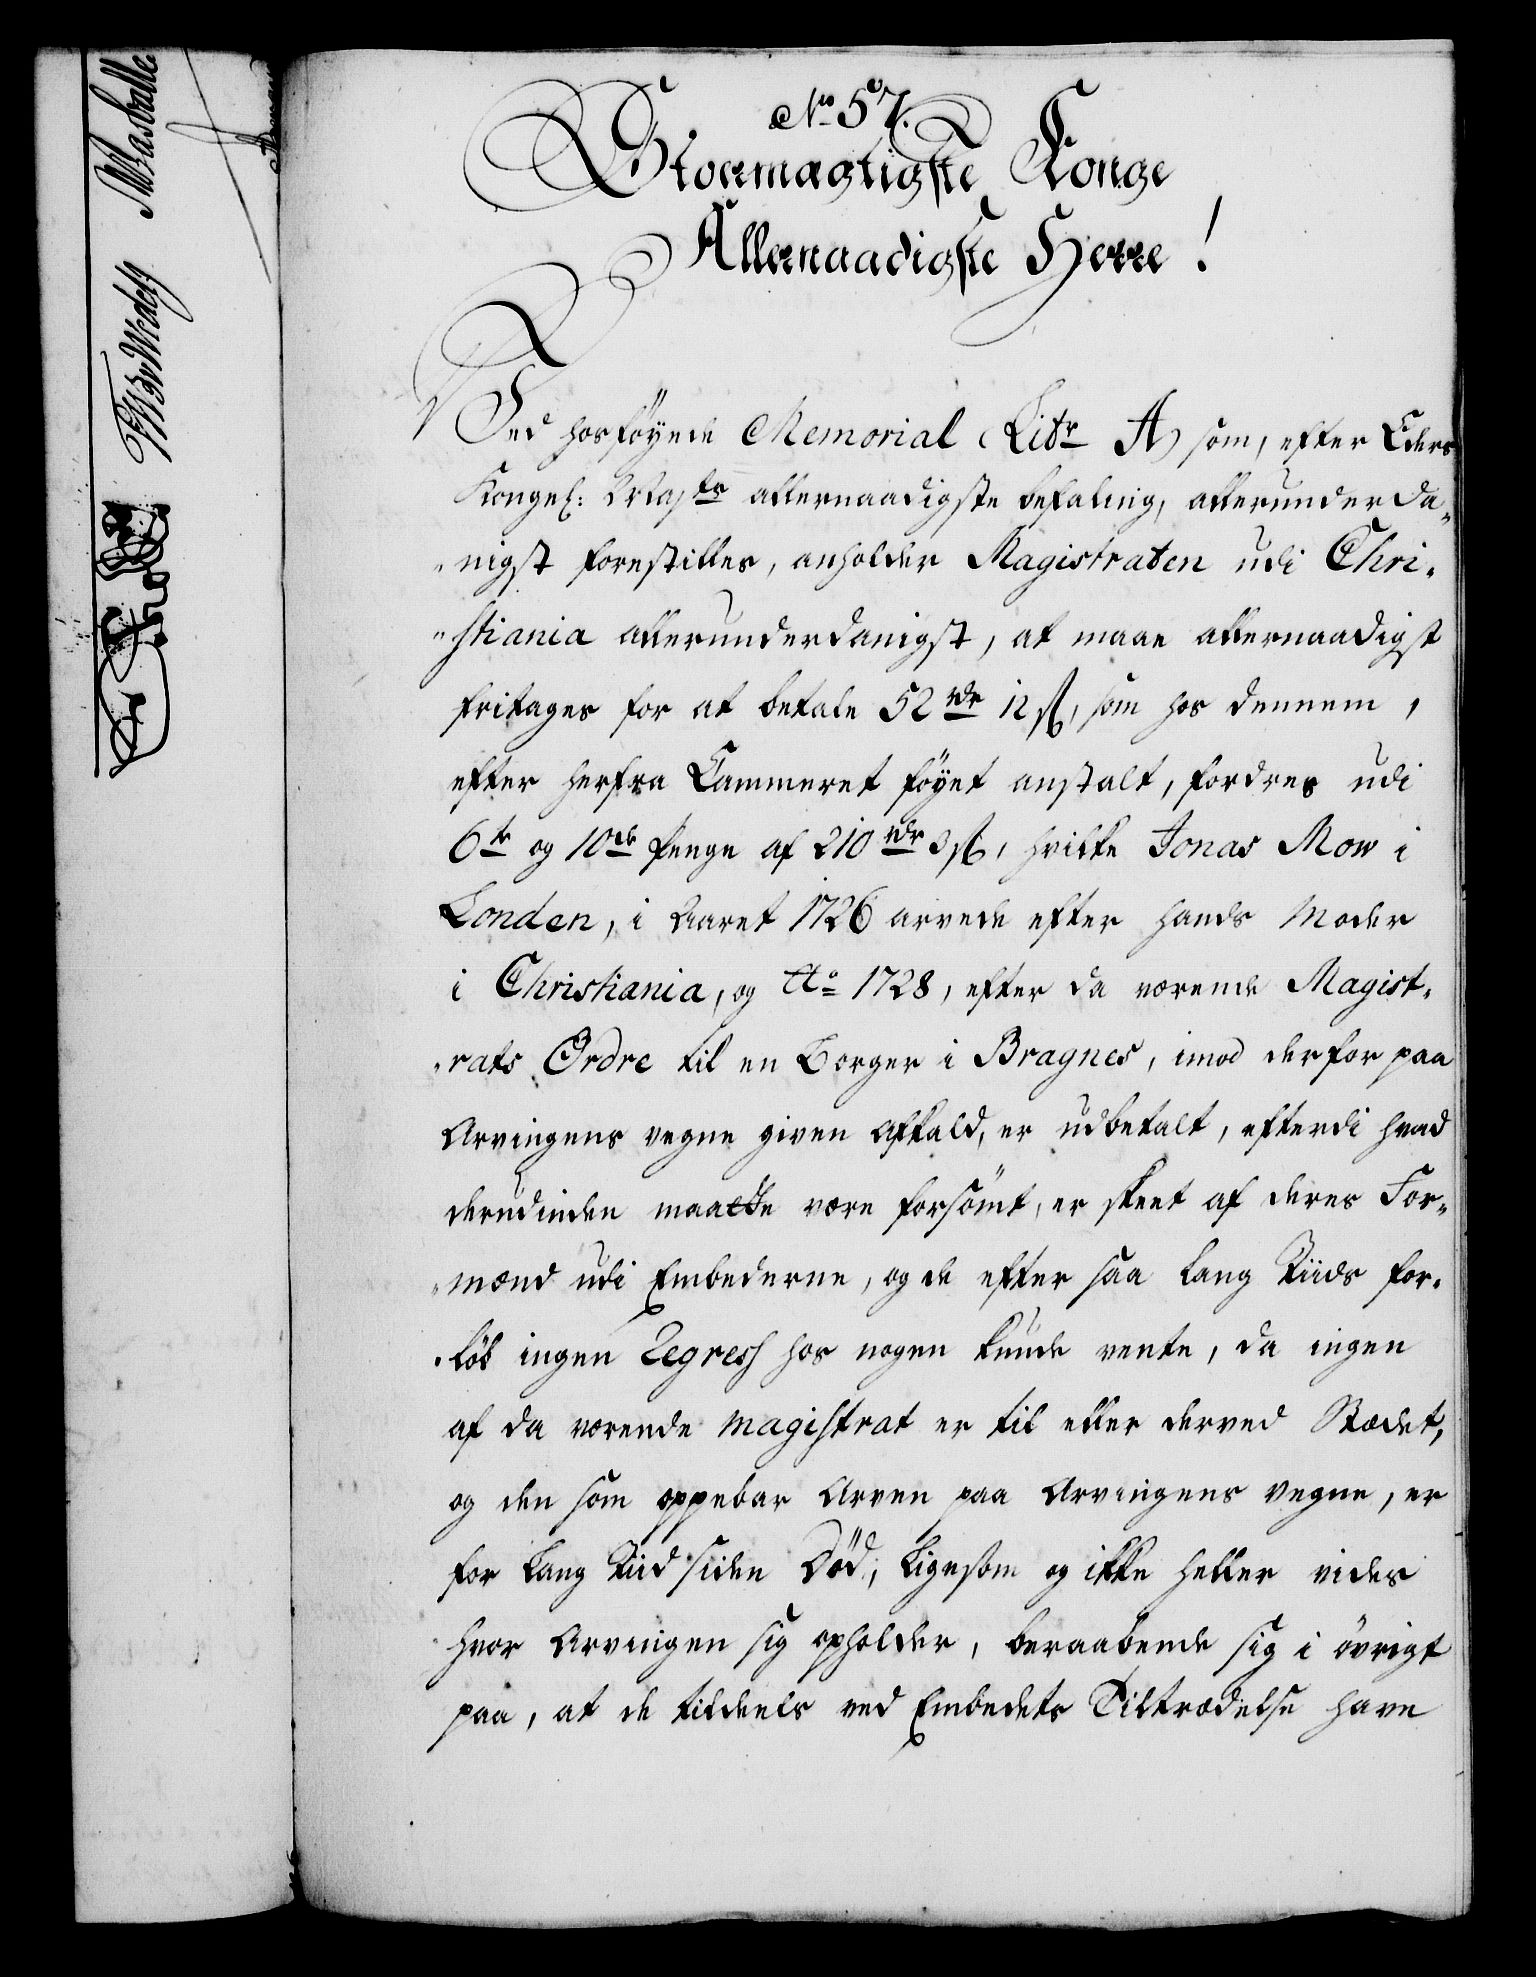 No 57.
Stormægtigste Konge
Allernaadigste Herre!
Ved hosföyede Memorial (Litr A) som, efter Eders
Kongel: Mayts allernaadigste befaling, allerunderda„
„nigst forestilles, anholder Magistraten udi Chri„
„stiania allerunderdanigst, at maae allernaadigst
fritages for at betale 52 rdr 12 ß, som hos dennem,
efter herfra Cammeret föyet anstalt, fordres udi
6te og 10de Penge af 210 rdr 3 ß, hvilke Jonas Mow i
Londen, i Aaret 1726 arvede efter hands Moder
i Christiania, og Ao 1728, efter da værende Magist„
„rats Ordre til en Borger i Bragnes, imod derfor paa
Arvingens vegne given Afkald, er udbetalt, efterdi hvad
derudinden maatte være forsömt, er skeet af deres For„
„mænd udi Embederne, og de efter saa lang Tiids for„
„löb ingen Regress hos nogen kunde vente, da ingen
af da værende Magistrat er til eller derved Stædet,
og den som oppebar Arven paa Arvingens vegne, er
for lang Tiid siden Död, ligesom og ikke heller vides
hvor Arvingen sig opholder, beraabende sig i övrigt
paa, at de tildeels ved Embedets Tiltrædelse have